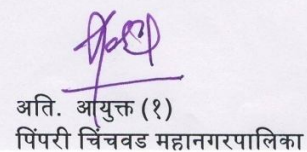 अति. आयुक्त (१)
पिंपरी चिंचवड महानगरपालिका